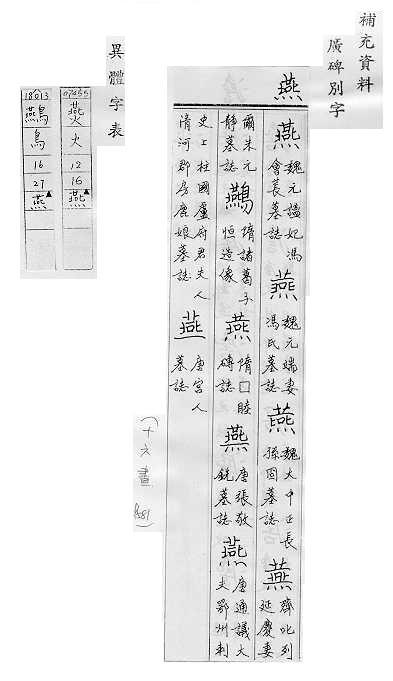 補充資料
廣碑別字
燕
燕 魏元諡妃馮會萇墓誌 燕 魏元端妻馮氏墓誌 燕 魏大中正長孫囧墓誌 燕 齊叱列延慶妻
爾朱元靜墓誌 鷰 隋諸葛子恒造像 燕 隋□睦磚誌 燕 唐張敬銑墓誌 燕 唐通議大夫鄂州刺
史上柱國盧府君夫人清河郡房鹿娘墓誌 燕 唐宮人墓誌
(十六畫 1581)
異體字表
07455
火
12
16
燕
18013
鷰
鳥
16
27
燕